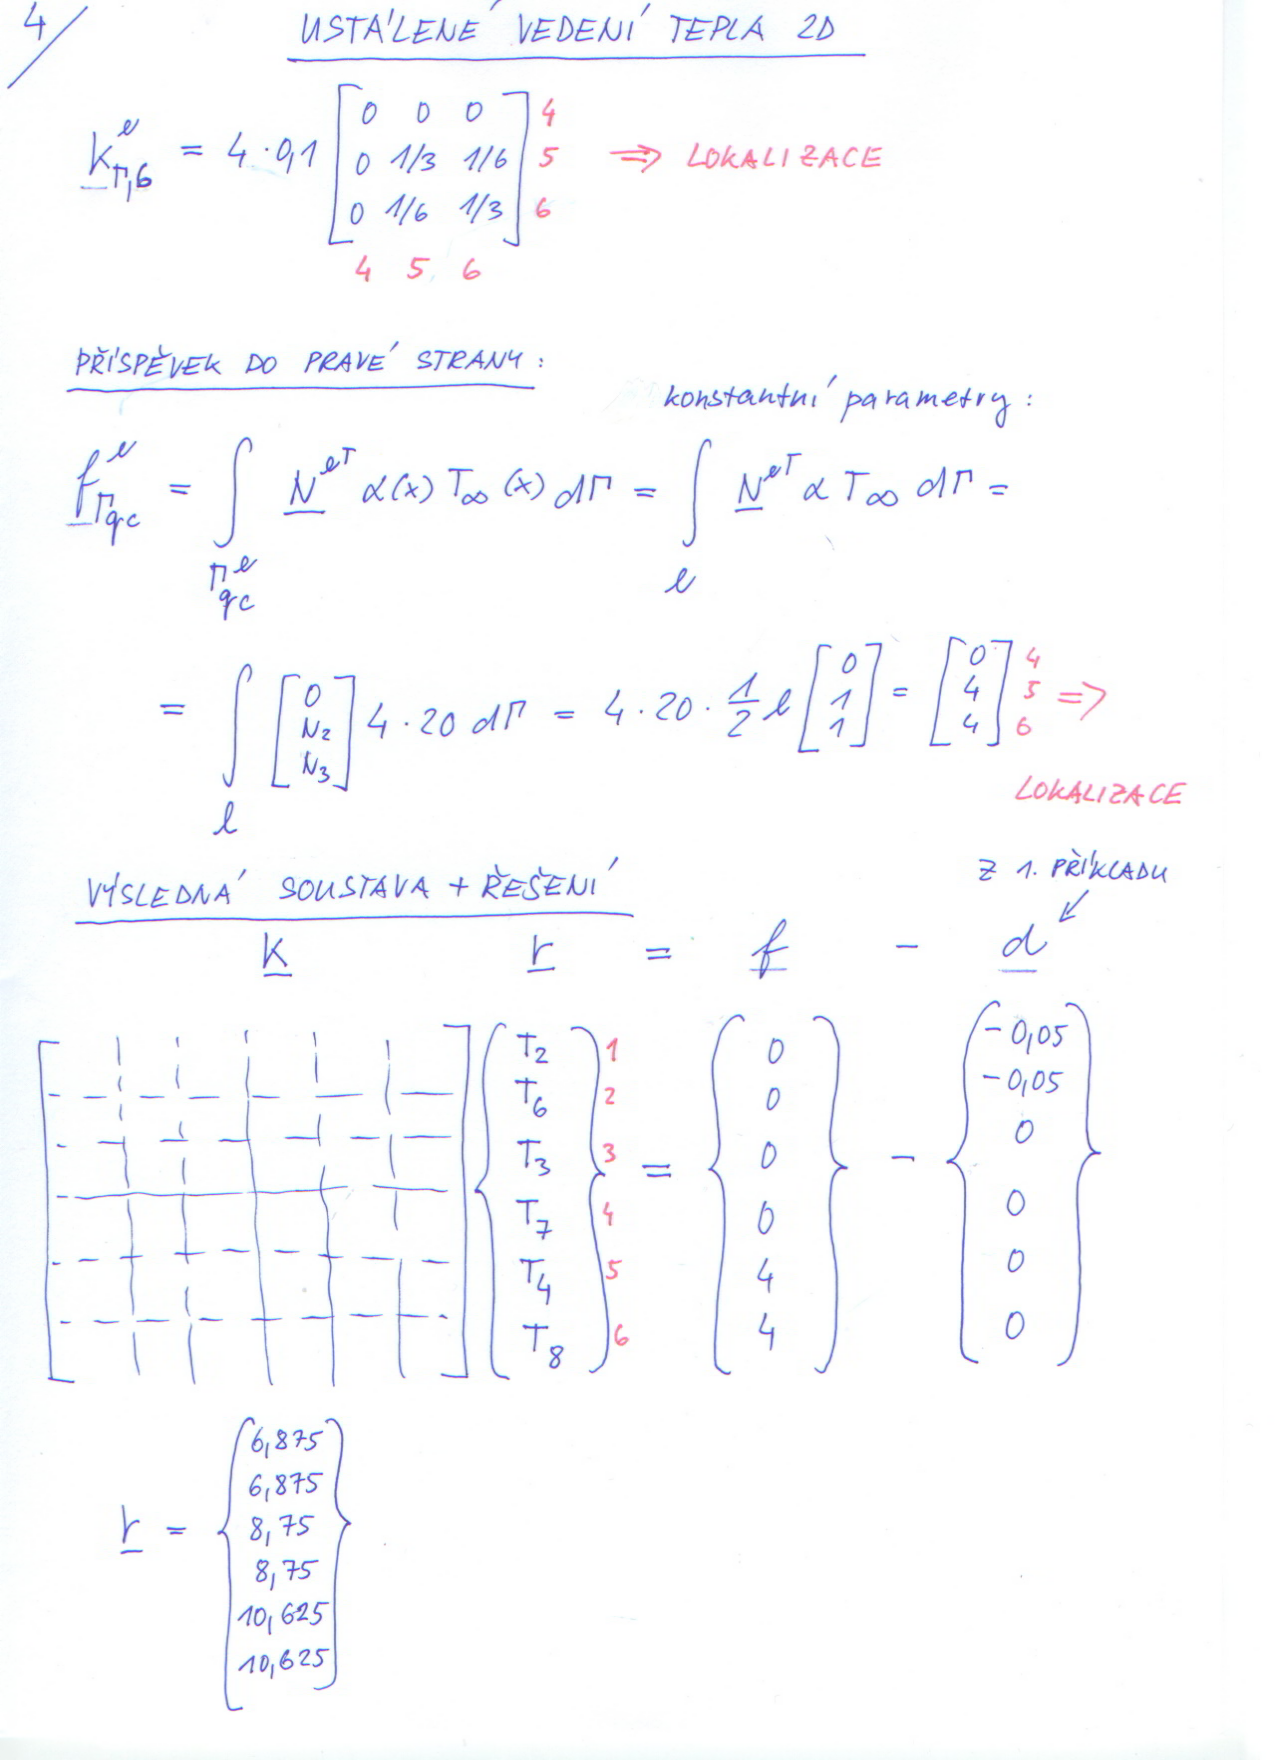 4/
USTÁLENÉ VEDENÍ TEPLA 2D
K^e_Γ,6 = 4·0,1 [0 0 0; 0 1/3 1/6; 0 1/6 1/3] 4 5 6 ⇒ LOKALIZACE
4 5 6
PŘÍSPĚVEK DO PRAVÉ STRANY:
konstantní parametry:
f^e_Γqc = ∫_Γ^e_qc N^eT α(x) T∞(x) dΓ = ∫_l N^eT α T∞ dΓ =
= ∫_l [0; N2; N3] 4·20 dΓ = 4·20·1/2 l [0; 1; 1] = [0; 4; 4] 4 5 6 ⇒
LOKALIZACE
Z 1. PŘÍKLADU
VÝSLEDNÁ SOUSTAVA + ŘEŠENÍ
K r = f - d
T2 1 0 -0,05
T6 2 0 -0,05
T3 3 = 0 - 0
T7 4 0 0
T4 5 4 0
T8 6 4 0
r = {6,875
6,875
8,75
8,75
10,625
10,625}